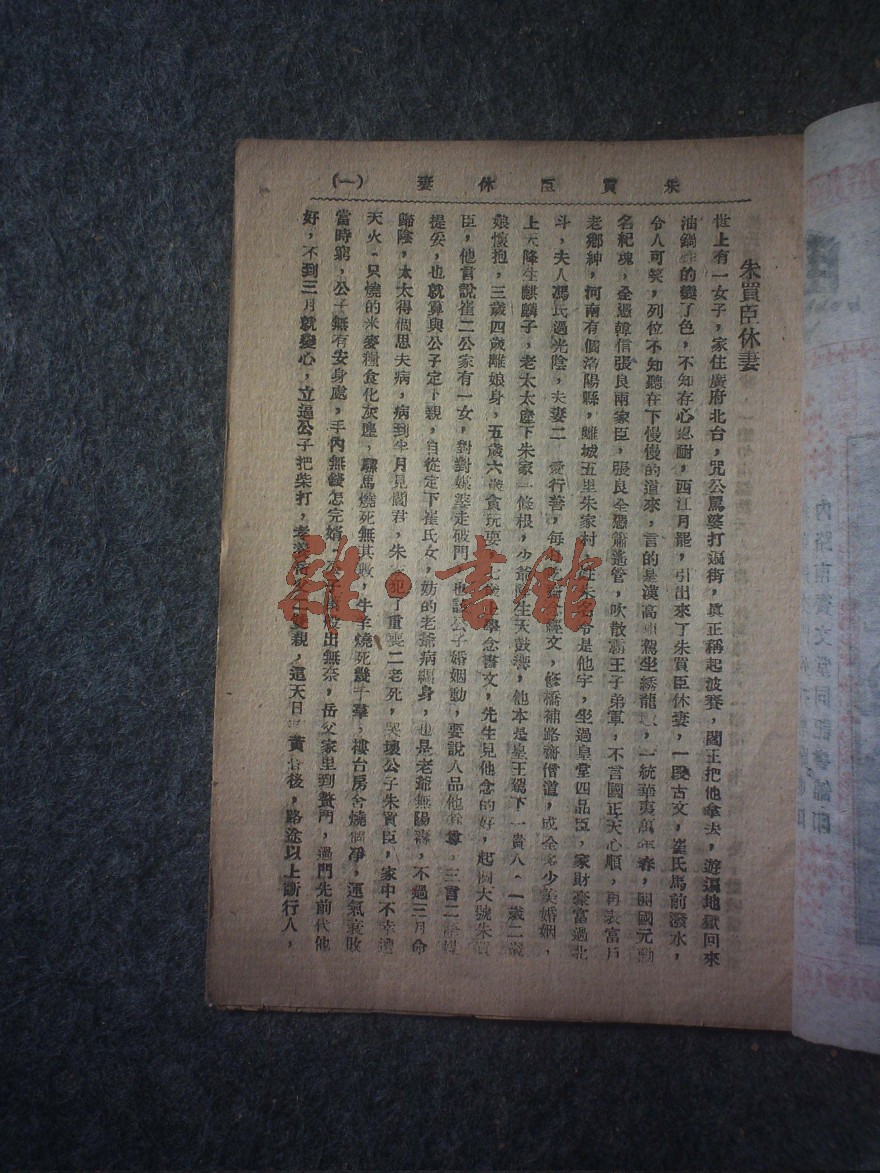 朱買臣休妻(一)
朱買臣休妻
世上有一女子，家住廣府北台，咒公罵婆打逼街，真正稱起波賽，閻王把他拿去，遊遍地獄回來
油鍋的變了色，不知存心忍耐，西江月罷，引出來了朱買臣休妻，一段古文，崔氏馬前潑水，
令人可笑，列位不知聽在下慢慢的道來，言的是漢高駕坐綉龍，一統華夷萬年春，開國元勳
名紀魂，全憑韓信張良兩家臣，張良全憑簫遙管，吹散霸王子弟軍，不言國正天心順，再表富戶
老鄉紳，河南有個洛陽縣，離城五里朱家村，姓朱名是他字，坐過皇堂四品臣，家財豪富過北
斗，夫人馮氏過光陰，夫妻二愛行善，每經文，修橋補路齋僧道，成全多少美婚姻，
上天降生麒麟子，老太太產下朱家一條根，少爺降生天鼓響，他本是皇王駕下一貴人，一歲二歲
娘懷抱，三歲四歲離娘身，五歲六歲貪玩耍，七歲上學念書文，先生見他念的好，起個大號朱買
臣，他言說崔二公家有一女，對對媒婆走破門，也該公子婚姻動，要說人品他為尊，三言二語
提妥，也就算與公子定下親，自從定下崔氏女，妨的老爺病纏身，也是老爺無陽壽，不過三月命
歸陰，太太得個思夫病，病到半月見閻君，朱犯了重喪二老死，哭壞公子朱買臣，家中不幸遭
天火，只燒的米麥糧食化灰塵，騾馬燒死無其數，牛羊燒死幾子羣，樓台房舍燒個凈，運氣衰敗
當時窮，公子無有安身處，手內無錢怎完婚，公子出無奈，岳父家里到贅門，過門先前代他
好，不到三月就變心，立逼公子把柴打，雙親，這天日黃昏後，路途以上斷行人，
雜·書館
內路南文堂同記書印